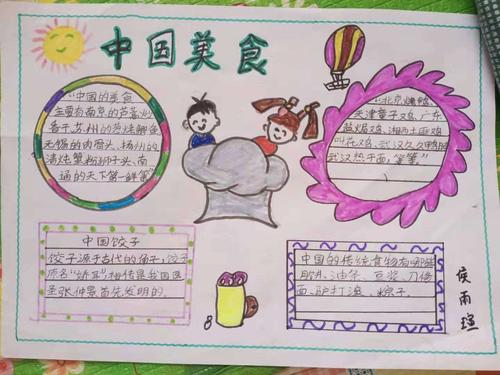 中国美食
"中国的美食
主要有南京的芦蒿炒
香干,苏州的
无锡的肉骨头,扬州的
清炖蟹粉狮子头、南
通的天下第一鲜等"
"北京烤鸭
天津童子鸡,广东
盐焗鸡、湘西土匪鸡
叫花鸡、武汉久久鸭脖
武汉热干面,等等"
中国饺子
饺子源于古代的角子,饺子
原名"娇耳"相传是我国医
圣张仲景首先发明的。
中国的传统食物有哪些
油条、豆浆、刀削
面、驴打滚、粽子.
侯雨